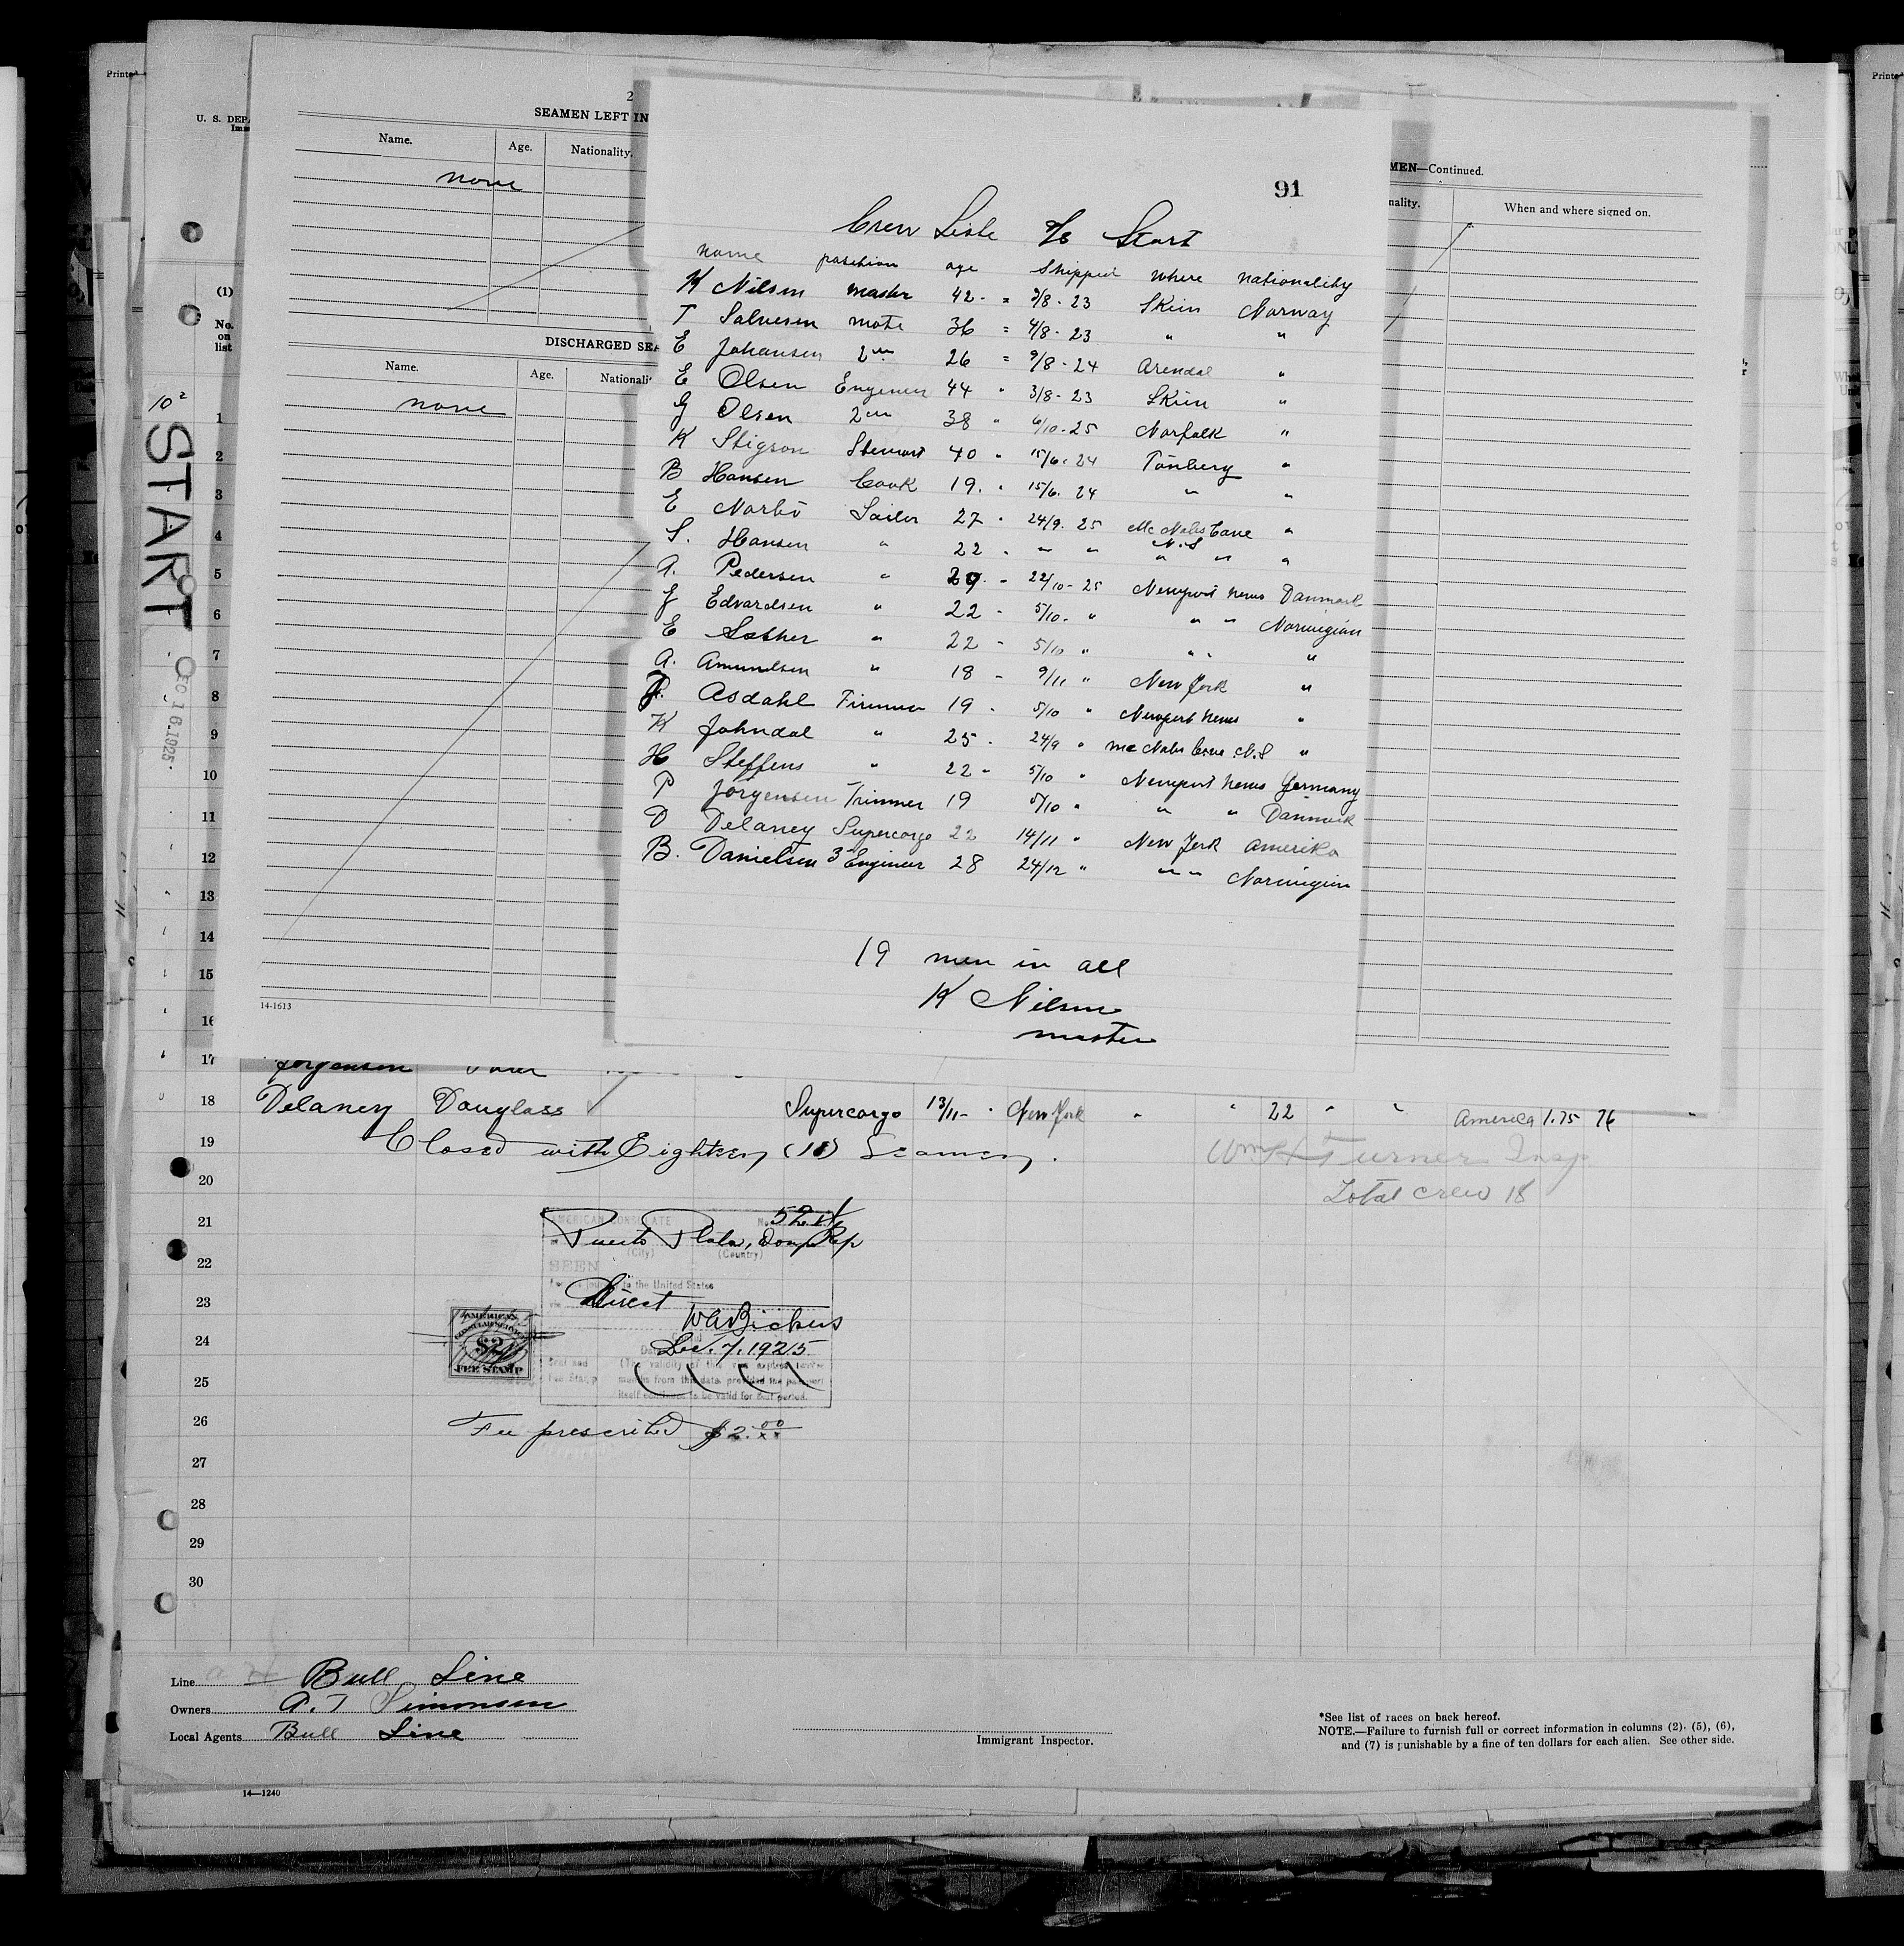 Printed
U. S. DEP
Imm
(1)
No.
on
list
10²
START
DEC 16.1925.
2
SEAMEN LEFT IN
Name. Age. Nationality.
none
DISCHARGED SEA
Name. Age. Nationali
none
14-1613
MEN—Continued.
nality. When and where signed on.
91
Crew Liste S/S Start
name position age Shipped where nationality
K Nilsen master 42 - = 3/8 - 23 Skien Norway
T Salvesen mate 36 = 4/8 - 23 " "
E Johansen 2en 26 = 9/8 - 24 Arendal "
E Olsen Engineer 44 " 3/8 - 23 Skien "
G Olsen 2en 38 " 6/10 - 25 Norfolk "
K Stigson Stewart 40 " 15/6. 24 Tönberg "
B Hansen Cook 19. " 15/6. 24 " "
E Narbö Sailor 27 " 24/9. 25 Mc Nabs Cave "
N.S
S. Hansen " 22 . " " " " "
A. Pedersen " 29 - 22/10 - 25 Newport News Danmark
G Edvardsen " 22 - 5/10. " " " Norwigian
E " 22 - 5/10 " " " "
A. Amundsen " 18 - 9/11 " New York "
Asdahl Fireman 19 - 5/10 " Newport News "
K Johndal " 25 - 24/9 " Mc Nabs Cove. N.S "
H Steffens " 22 - 5/10 " Newport News Germany
P Jörgensen Trimmer 19 5/10 " " " Danmark
D Delaney Supercargo 22 14/11 " New York Amerika
B. Danielsen 3 Engineer 28 24/12 " " " Norwigian
19 men in all
K Nilsen
master
1
2
3
4
5
6
7
8
9
10
11
12
13
14
15
16
17 Jorgensen
18 Delaney Douglass ✓ Supercargo 13/11 - " New York " " 22 " " America 1.75 76
19 Closed with Eighteen (18) Seamen.
Wm H Turner Insp
20
Total crew 18
21
AMERICAN CONSULATE No. 52
Puerto Plata, Dom Rep
(City) (Country)
22
SEEN
For the journey to the United States
23
Direct
WABickers
24
Dec. 7. 1925
AMERICAN
CONSULAR SERVICE
$2
FEE STAMP
Seal and
Fee Stamp
(The validity of this visa expires twelve
months from this date provided the passport
itself continues to be valid for that period.
25
26
Fee prescribed $2.00
27
28
29
30
Line Bull Line
Owners A. T Simonsen
Local Agents Bull Line
Immigrant Inspector.
*See list of races on back hereof.
NOTE.—Failure to furnish full or correct information in columns (2). (5), (6),
and (7) is punishable by a fine of ten dollars for each alien. See other side.
14—1240